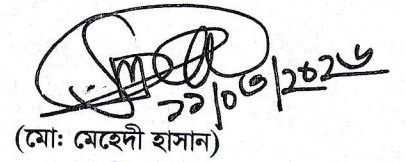 ২২/০৩/২০২৬
(মো: মেহেদী হাসান)